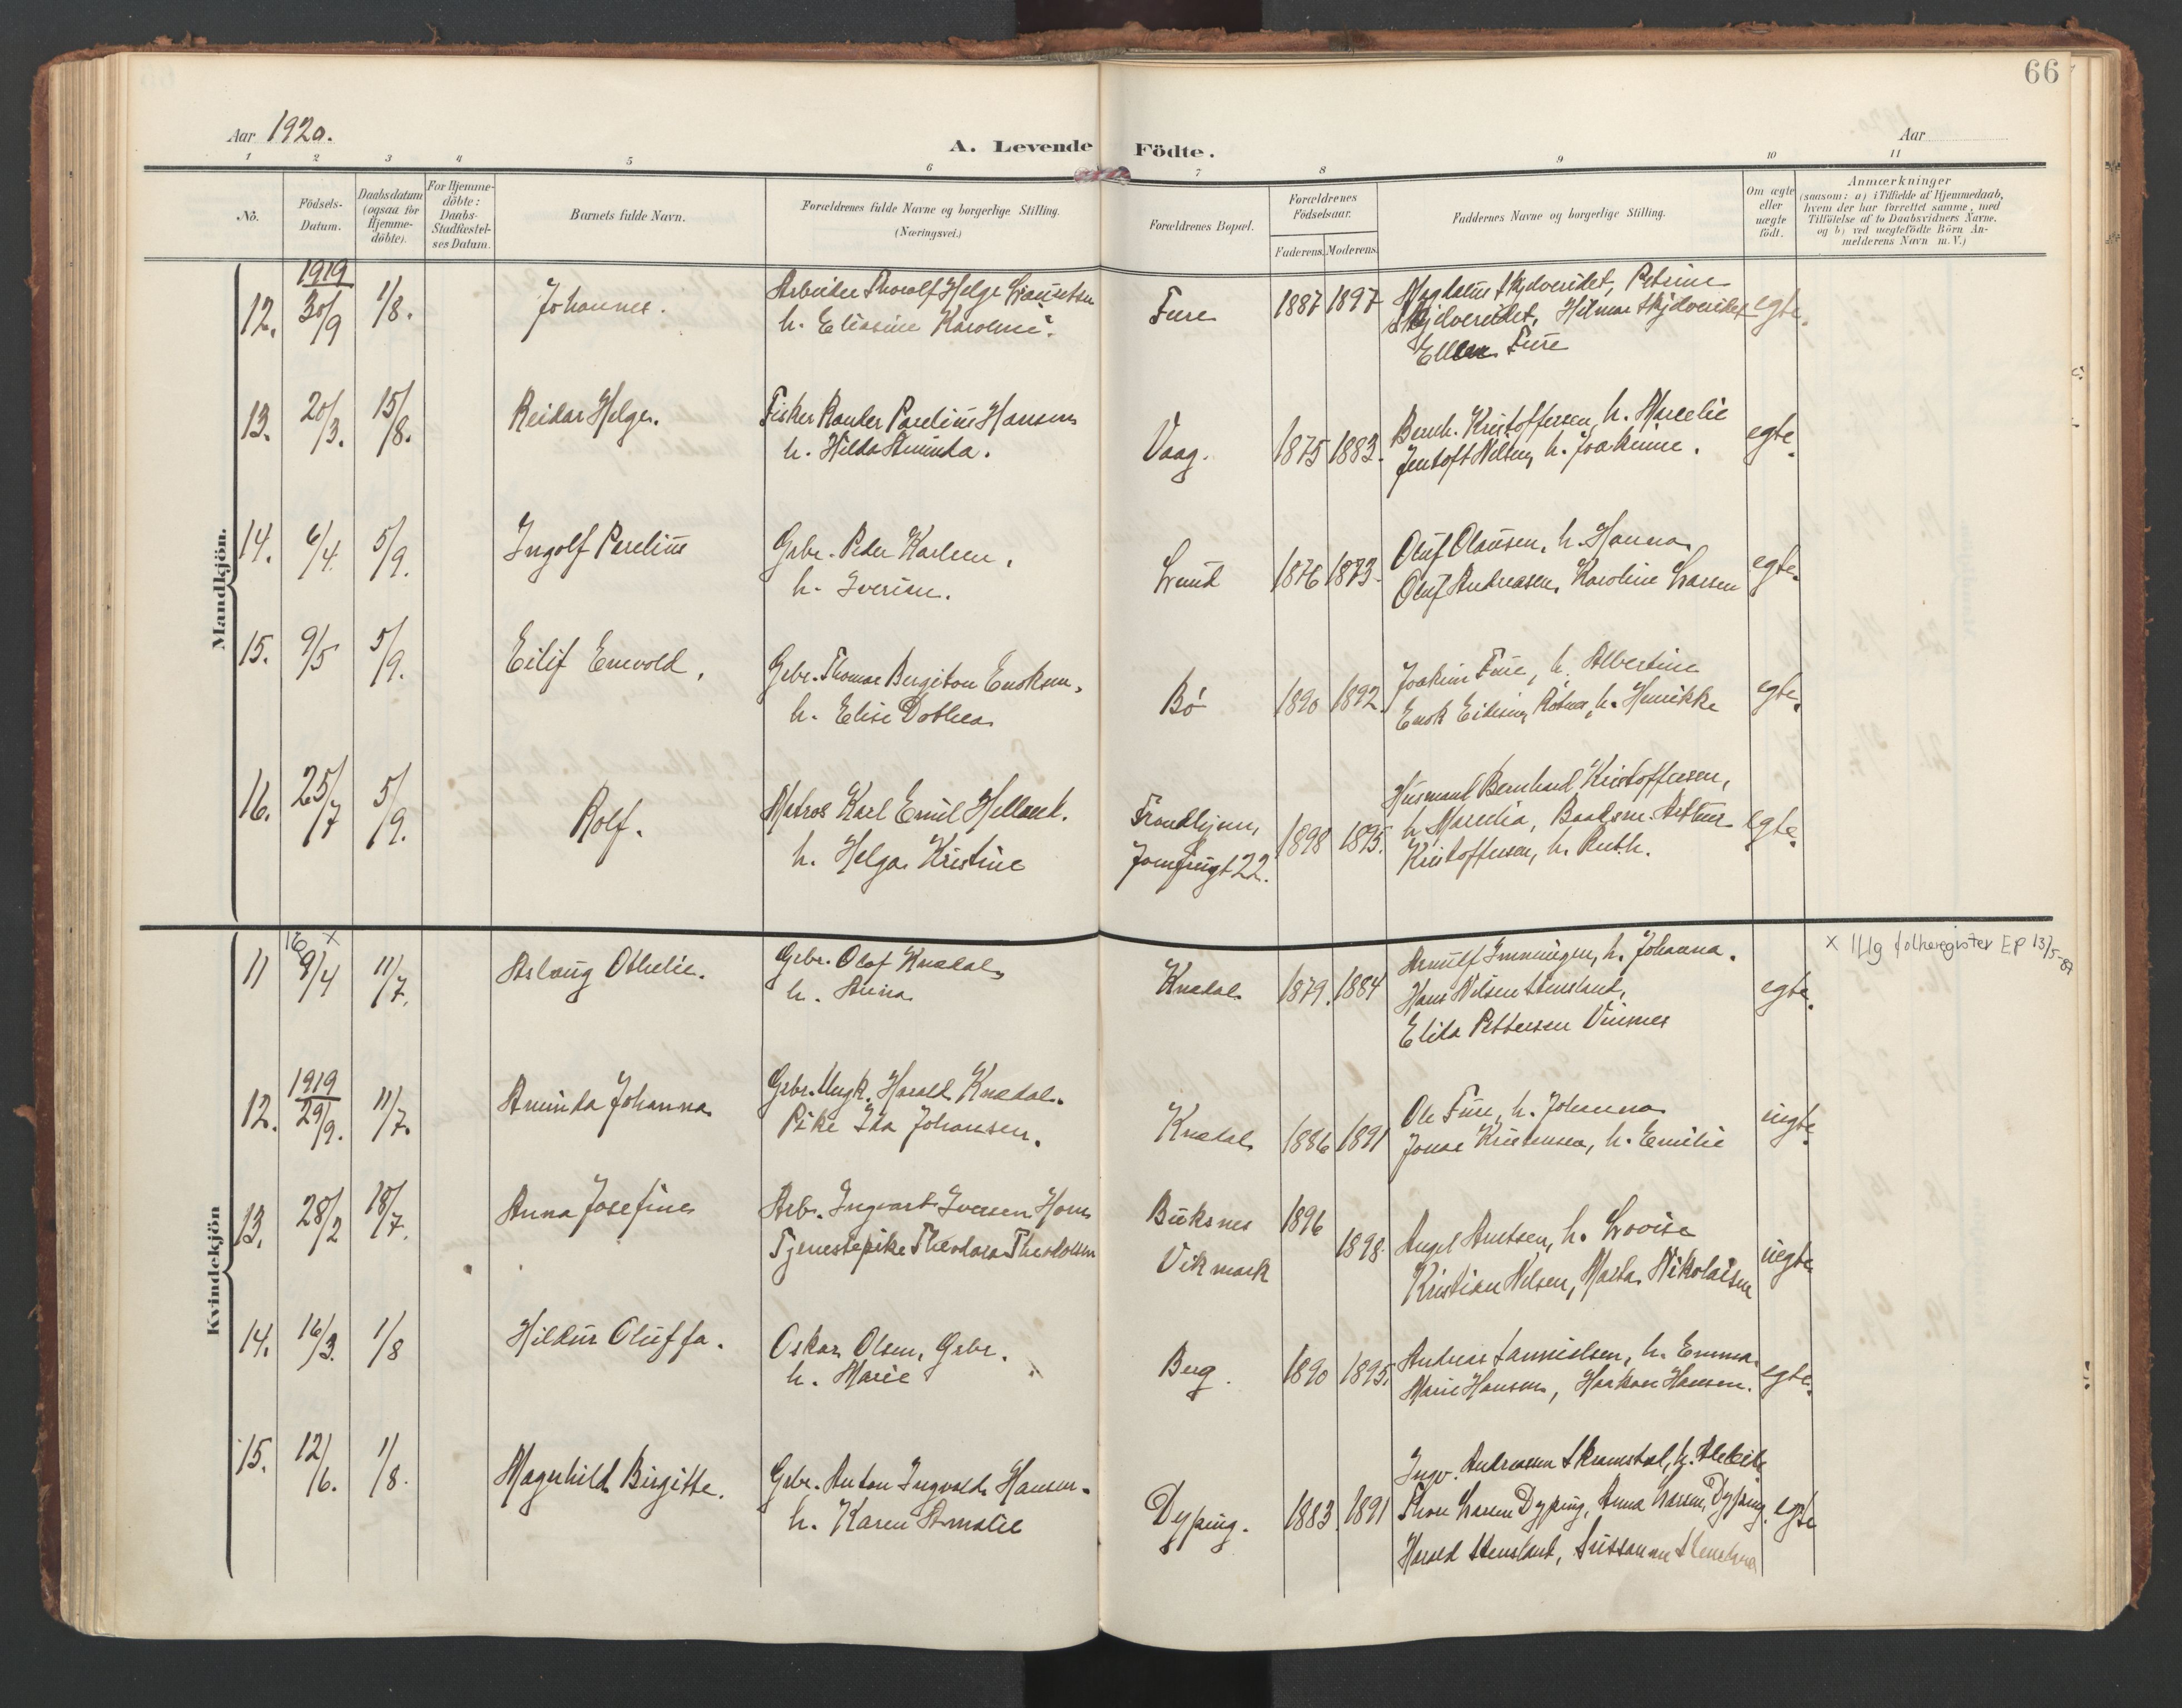 66
Aar 1920.
A. Levende Födte.
Aar
1 2 3 4 5 6 7 8 9 10 11
No.
Födsels-Datum.
Daabsdatum (ogsaa for Hjemmedöbte).
For Hjemmedöbte: Daabs-Stadfæstelses Datum.
Barnets fulde Navn.
Forældrenes fulde Navne og borgerlige Stilling.
(Næringsvei.)
Forældrenes Bopæl.
Forældrenes Födselsaar.
Faderens. Moderens.
Faddernes Navne og borgerlige Stilling.
Om ægte eller uægte födt.
Anmærkninger
(saasom: a) i Tilfælde af Hjemmedaab, hvem der har forrettet samme, med Tilföielse af to Daabsvidners Navne. og b) ved uægtefödte Börn Anmelderens Navn m. V.)
Mandkjön.
12. 1919 30/9 1/8. Johannes.
Arbeider Thoralf Helge
h. Eliasine Karoline.
Fure 1887 1897
Magdalene Skjelvereidet, Petrine
Skjelvereidet, Hilmar Skjelvereidet
Ellen Fure
egte.
13. 20/3. 15/8. Reidar Helge.
Fisker Rander Pareliüs Hansen
h. Hilda Aminda.
Vaag. 1875 1883.
Bernh. Kristoffersen, h. Marcelie
Jentoft Nilsen, h. Joakimine.
egte.
14. 6/4. 5/9. Ingolf Pareliüs
Grbr. Peder Karlsen,
h. Iverine.
Lund 1876 1873.
Oluf Olaüsen, h. Hanna
Oluf Andreasen, Karoline Larsen
egte.
15. 9/5 5/9. Eilif Enevold,
Grbr. Thomas Bergiton Enoksen,
h. Elise Dothea
Bö 1890 1892.
Joakim Fure, h. Albertine
Enok h. Henrikke
egte.
16. 25/7 5/9. Rolf.
Matros Karl Emil Helland.
h. Helga Kristine
Trondhjem,
Jomfrugt 22.
1898 1895.
Husmand Bernhard Kristoffersen,
h. Marcelia, Baadsm. Arthur
Kristoffersen, h. Ruth.
egte.
Kvindekjön
11 16 x 9/4 11/7. Aslaug Othelie.
Grbr. Olaf Knædal,
h. Anna
Knædal 1879. 1884
Arnulf h. Johanna.
Hans Nilsen Stensland,
Elida Pettersen Vinsnes
egte.
x Illg folkeregister EP 13/5-87
12. 1919 29/9. 11/7. Aminda Johanna
Grbr. Ungk. Harald Knædal.
Pike Ida Johansen.
Knædal 1886 1891
Ole Fure, h. Johanna
Jonas Kristensen, h. Emilie
uegte.
13. 28/2 18/7. Anna Josefine
Arb. Ingvart Iversen Horn
Tjenestepike Theodora Theodorsen
Buksnes
Vikmark
1896
1898.
Angel Arntsen, h. Lovise
Kristian Nilsen, Marta Nikolaisen
uegte
14. 16/3. 1/8 Hildur Oluffa.
Oskar Olsen, Grbr.
h. Marie
Berg. 1890 1895.
Andreas Danielsen, h. Emma
Marie Hansen, Haakon Hansen.
egte.
15. 12/6. 1/8. Magnhild Birgitte.
Grbr. Anton Ingvald Hansen.
h. Karen Amalie
Dyping. 1883 1891
Ingv. Andreassen Skramstad, h.
Thore Larsen Dyping, Anna Larsen, Dyping.
Harald Stensland, Susanna
egte